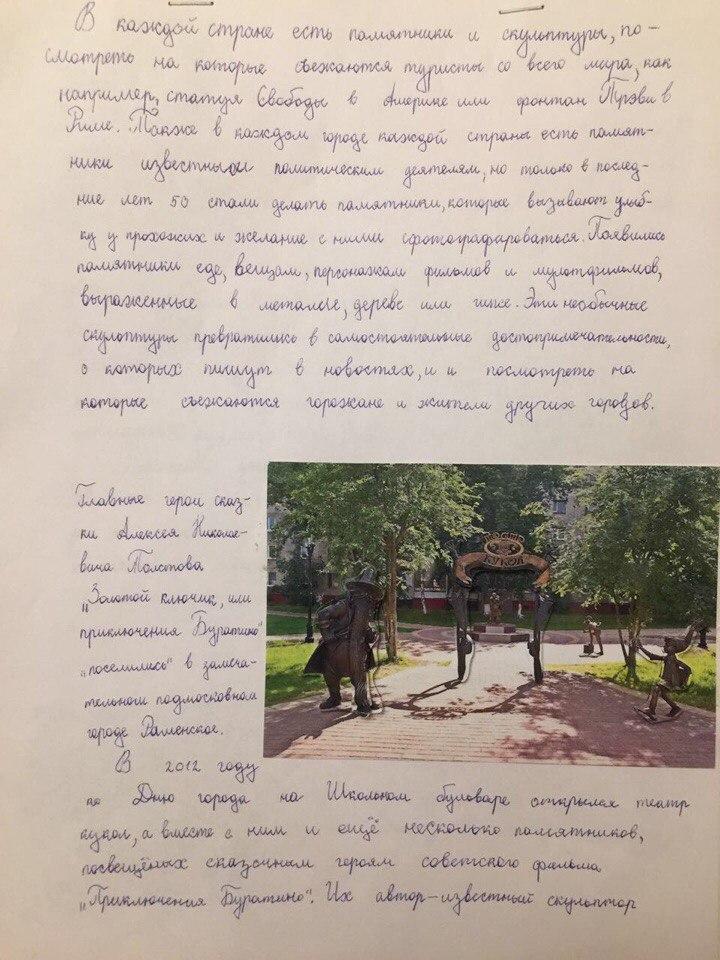 В каждой стране есть памятники и скульптуры, по-
смотреть на которые съезжаются туристы со всего мира, как
например, статуя Свободы в Америке или фонтан Трэви в
Риме. Также в каждом городе каждой страны есть памят-
ники известным политическим деятелям, но только в послед-
ние лет 50 стали делать памятники, которые вызывают улыб-
ку у прохожих и желание с ними сфотографироваться. Появились
памятники еде, вещам, персонажам фильмов и мультфильмов,
выраженные в металле, дереве или гипсе. Эти необычные
скульптуры превратились в самостоятельные достопримечательности,
о которых пишут в новостях, и и посмотреть на
которые съезжаются горожане и жители других городов.
Главные герои сказ-
ки Алексея Николае-
вича Толстова
„Золотой ключик, или
приключения Буратино"
„поселились" в замеча-
тельном подмосковном
городе Раменское.
В 2012 году
ко Дню города на Школьном бульваре открылся театр
кукол, а вместе с ним и ещё несколько памятников,
посвещёных сказочным героям советского фильма
„Приключения Буратино". Их автор-известный скульптор
КУКОЛ